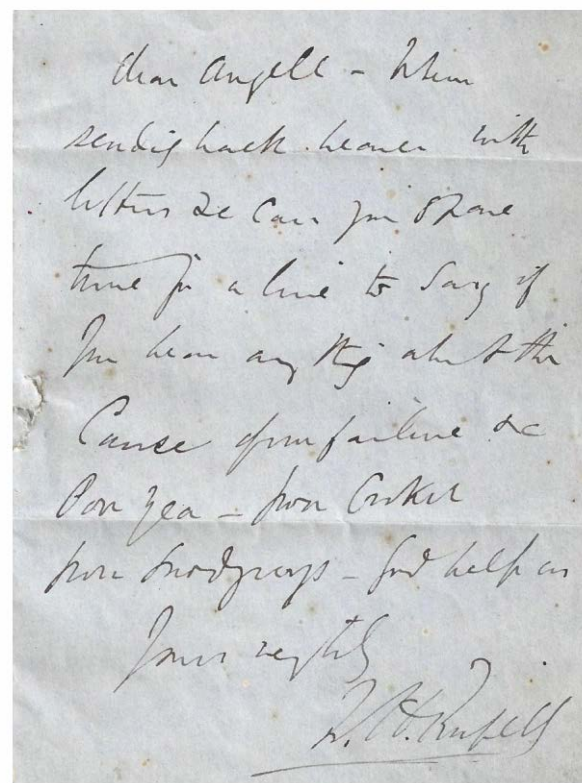 Dear Angell - When
sending back bearer with
letters &c can you spare
time for a line to say if
you hear anything about the
cause of our failure &c
Poor Yea - poor
poor Snodgrass - God help us
Yours
W. H. Russell